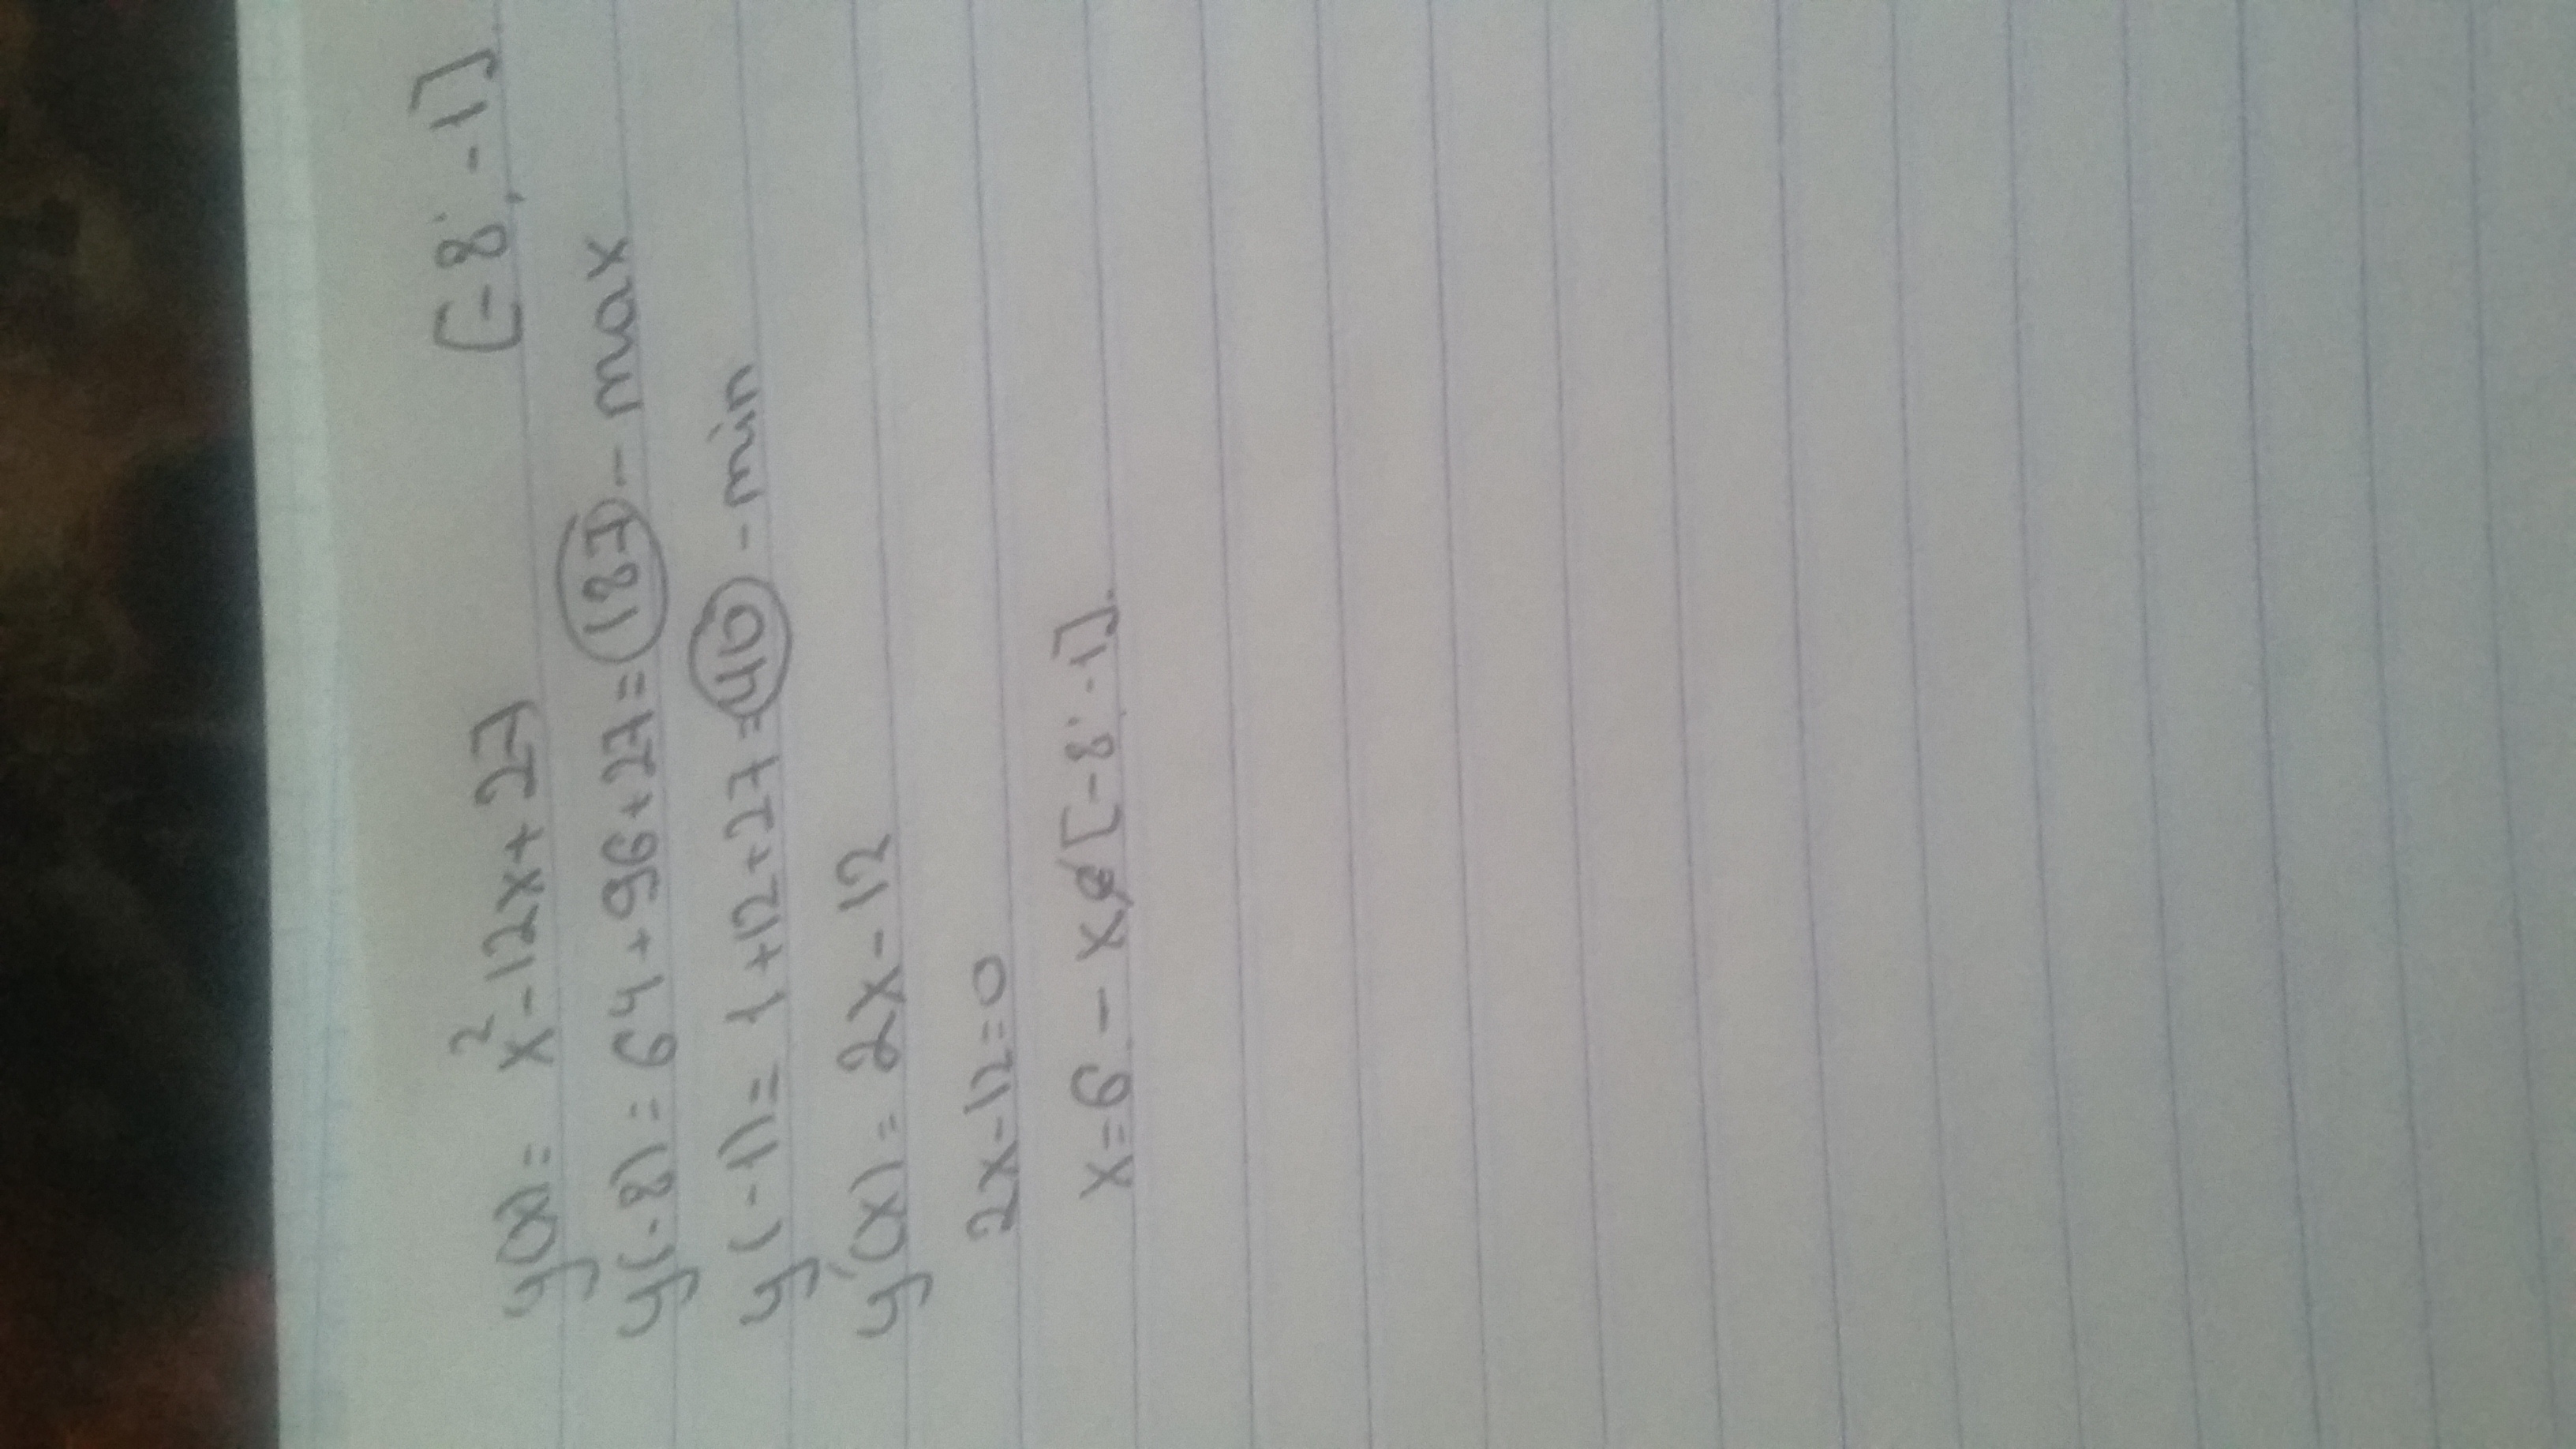 y(x) = x² - 12x + 27 [-8; -1]
y(-8) = 64 + 96 + 27 = 187 - max
y(-1) = 1 + 12 + 27 = 40 - min
y'(x) = 2x - 12
2x - 12 = 0
x = 6 - x∉[-8; -1].